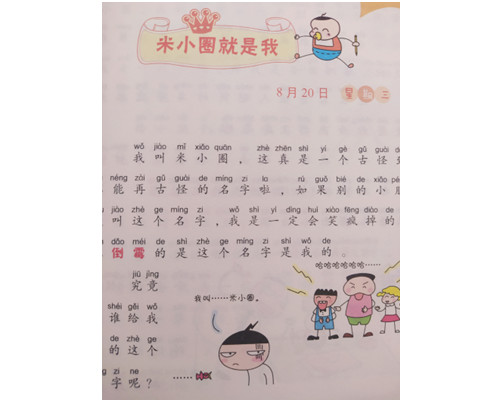 米小圈就是我
8月20日 星 三
wǒ jiào mǐ xiǎo quān zhè zhēn shì yí gè gǔ guài
我叫米小圈，这真是一个古怪
néng zài gǔ guài de míng zi la rú guǒ bié de xiǎo
能再古怪的名字啦，如果别的小
jiào zhè ge míng zi wǒ shì yí dìng huì xiào fēng diào de
叫这个名字，我是一定会笑疯掉的
dǎo méi de shì zhè ge míng zi shì wǒ de
倒霉的是这个名字是我的。
哈哈哈哈哈哈……
jiū jìng
究竟
我叫……米小圈。
shéi gěi wǒ
谁给我
de zhè ge
的这个
zi ne
字呢？
……